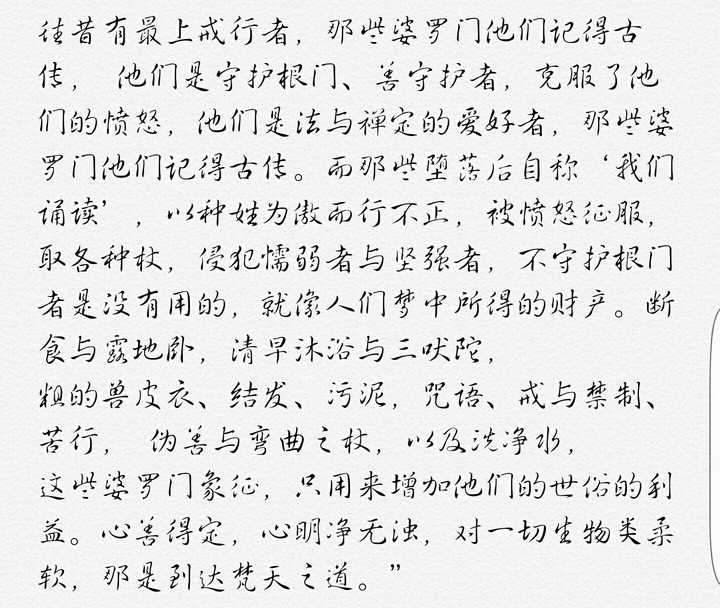 往昔有最上戒行者，那些婆罗门他们记得古
传， 他们是守护根门、善守护者，克服了他
们的愤怒，他们是法与禅定的爱好者，那些婆
罗门他们记得古传。而那些堕落后自称‘我们
诵读’，以种姓为傲而行不正，被愤怒征服，
取各种杖，侵犯懦弱者与坚强者，不守护根门
者是没有用的，就像人们梦中所得的财产。断
食与露地卧，清早沐浴与三吠陀，
粗的兽皮衣、结发、污泥，咒语、戒与禁制、
苦行， 伪善与弯曲之杖，以及洗净水，
这些婆罗门象征，只用来增加他们的世俗的利
益。心善得定，心明净无浊，对一切生物类柔
软，那是到达梵天之道。”